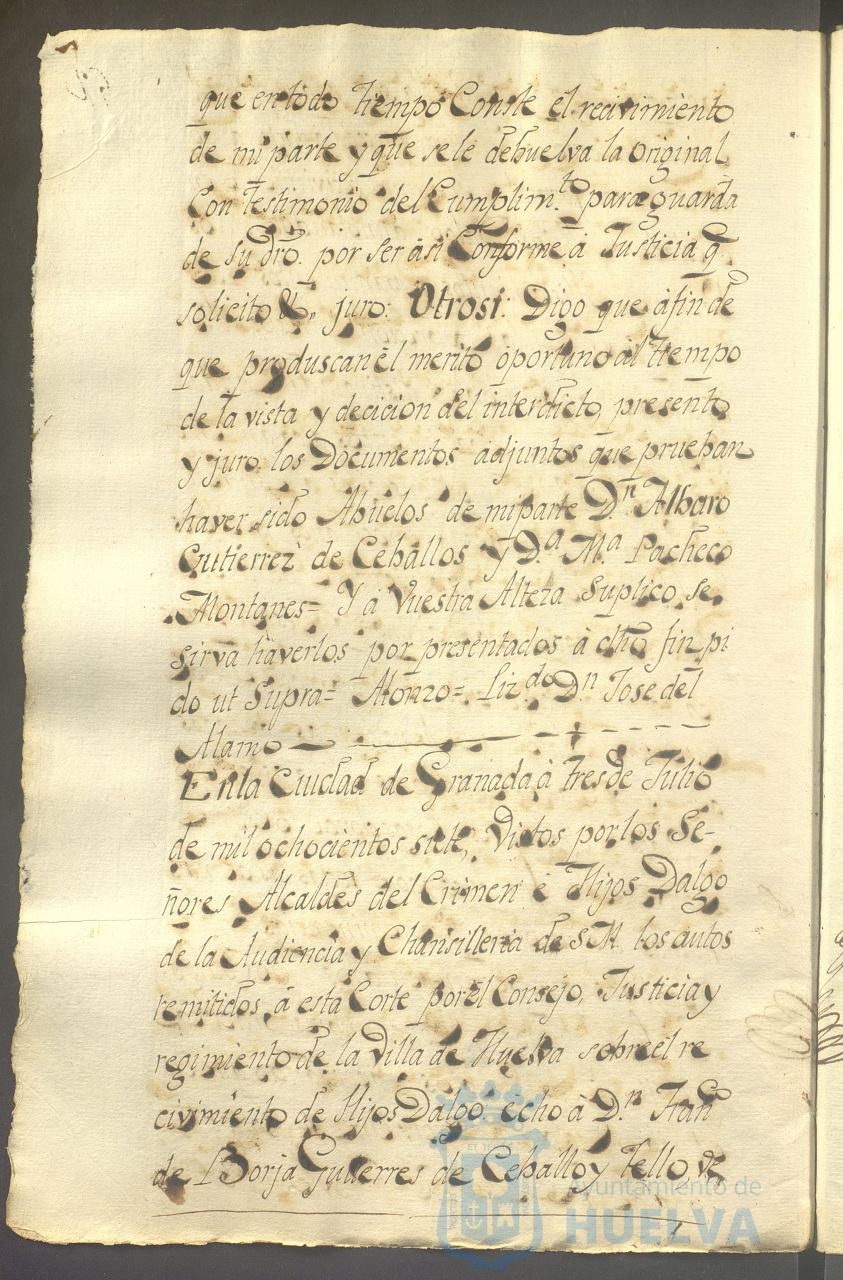 que en todo tiempo Conste el recivimiento
de mi parte y que se le debuelva la Original
Con testimonio del Cumplim.to para guarda
de su dro. por ser asi Conforme á Justicia q.
solicito &.. juro: Otrosi: Digo que á fin de
que produscan el merito oportuno al tiempo
de la vista y decicion del interdicto, presento
y juro los Documentos adjuntos que prueban
haver sido Abuelos de mi parte D.n Albaro
Gutierrez de Ceballos y D.a M.a Pacheco
Montanes= Y a Vuestra Alteza Suplico se
sirva haverlos por presentados à dho fin pi
do ut Supra= Alonzo= Liz.do D.n Jose del
Alamo
En la Ciudad de Granada à tres de Julio
de mil ochocientos siete, Vistos por los Se-
ñores Alcaldes del Crimen é Hijos Dalgo
de la Audiencia y Chancilleria de S.M. los autos
remitidos á esta Corte por el Consejo, Justicia y
regimiento de la Villa de Huelva sobre el re
civimiento de Hijos Dalgo echo à D.n Fran.co
de Borja Gutierres de Ceballo y Tello, de
Ayuntamiento de
HUELVA